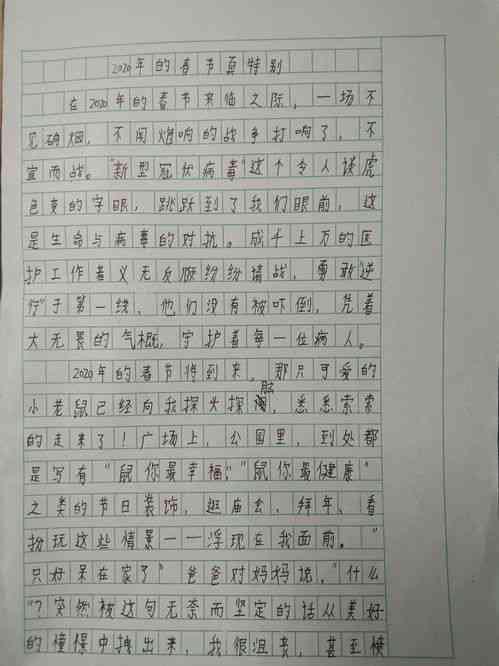 2020年的春节真特别
在2020年的春节来临之际,一场不
见硝烟,不闻炮响的战争打响了,不
宣而战。"新型冠状病毒"这个令人谈虎
色变的字眼,跳跃到了我们眼前,这
是生命与病毒的对抗。成千上万的医
护工作者义无反顾纷纷请战,勇敢"逆
行"于第一线,他们没有被吓倒,凭着
大无畏的气概,守护着每一位病人。
2020年的春节将到来,那只可爱的
小老鼠已经向我探头探脑,悉悉索索
的走来了!广场上,公园里,到处都
是写有"鼠你最幸福""鼠你最健康"
之类的节日装饰,逛庙会、拜年、看
扮玩这些情景一一浮现在我面前。"
只好呆在家了"爸爸对妈妈说,"什么
"?突然被这句无奈而坚定的话从美好
的憧憬中拽出来,我很沮丧,甚至愤